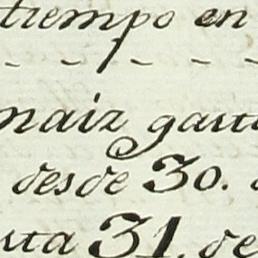 tiempo en
- - - - -
maiz gasta
desde 30.
sta 31. de